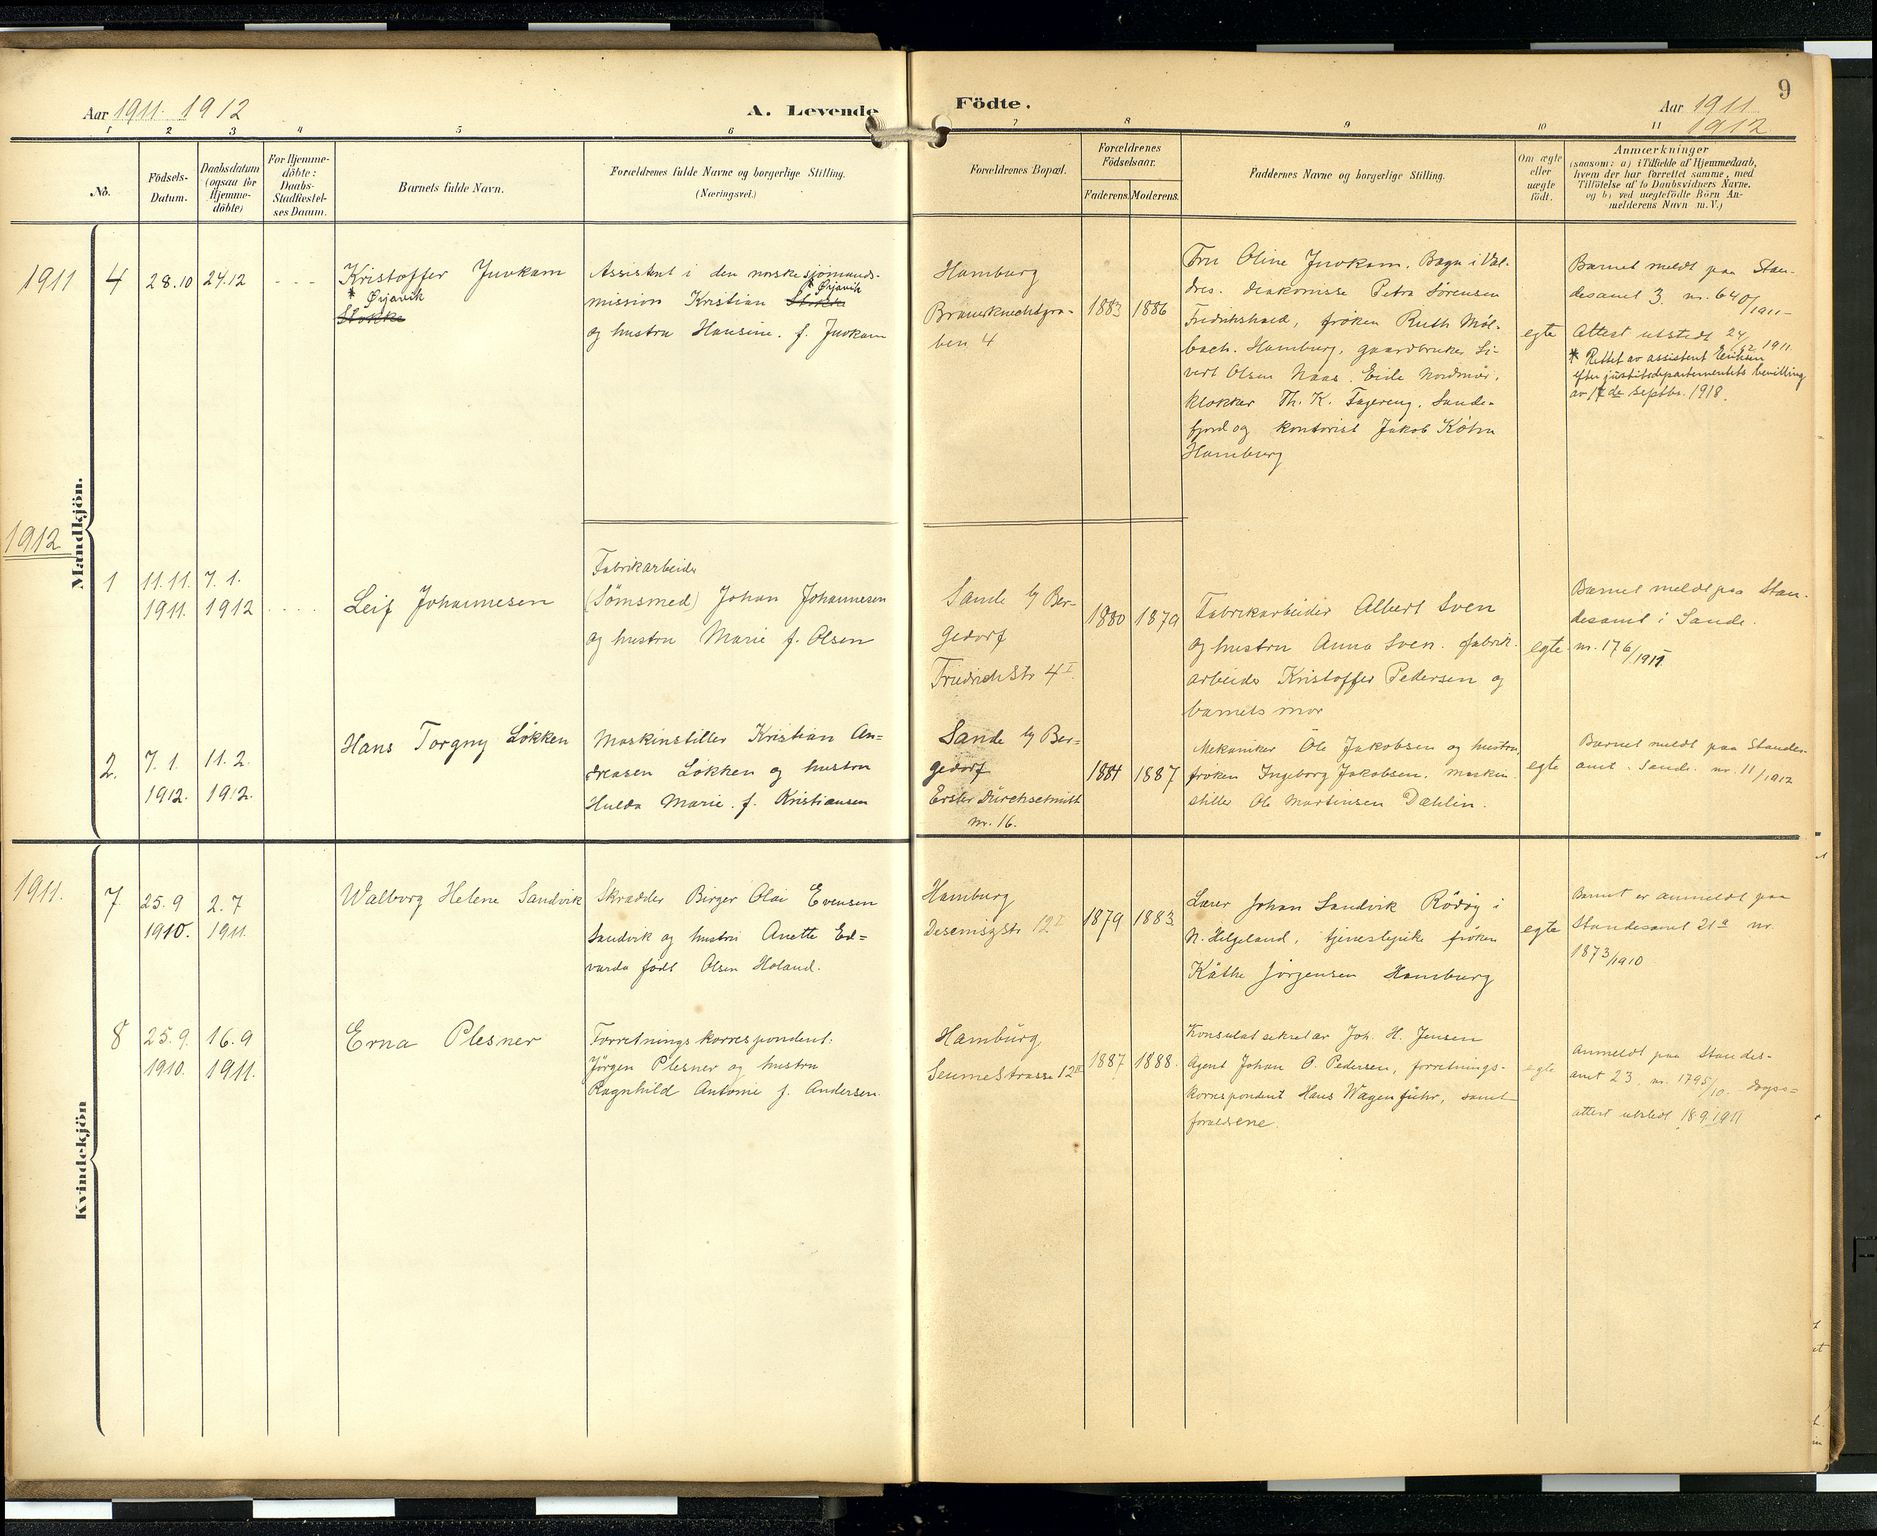 9
Aar 1911. 1912
A. Levende
Födte.
Aar 1911
1912
1 2 3 4 5 6 7 8 9 10 11
No.
Födsels-
Datum.
Daabsdatum
(ogsaa for
Hjemme-
döbte)
For Hjemme-
döbte:
Daabs-
Stadfæstel-
ses Datum.
Barnets fulde Navn.
Forældrenes fulde Navne og borgerlige Stilling.
(Næringsvei.)
Forældrenes Bopæl.
Forældrenes
Födselsaar.
Faderens. Moderens.
Faddernes Navne og borgerlige Stilling.
Om ægte
eller
uægte
födt.
Anmærkninger
(saasom: a) i Tilfælde af Hjemmedaab,
hvem der har forrettet samme, med
Tilföielse af to Daabsvidners Navne,
og b) ved uægtefödte Börn An-
melderens Navn m. V.)
Mandkjön.
1911
4
28.10
24.12
- - -
Kristoffer Juvkam
* Ørjavik
Stokke
Assistent i den norske sjømands-
* Ørjavik
mission Kristian Stokke
og hustru Hansine. f. Juvkam
Hamburg
Brauerknechtgra-
ben 4
1883
1886
Fru Oline Juvkam. Bagn i Val-
dres. diakonisse Petra Sørensen
Fredrikshald, frøken Ruth Møl-
bach. Hamburg, gaardbruker Si-
vert Olsen Naas. Eide Nordmør,
klokker Th. K. Fagereng. Sande-
fjord og kontorist Jakob Køhn
Hamburg
egte
Barnet meldt paa Stan-
desamt 3. nr. 640/1911
Attest utstedt 24/12 1911
* Rettet av assistent Eriksen
efter justitsdepartementets bevilling
av 17de septbr. 1918.
1912
1
11.11.
1911.
7.1.
1912
. . . .
Leif Johannesen
Fabrikarbeider
(Sømsmed) Johan Johannesen
og hustru Marie f. Olsen
Sande b/ Ber-
gedorf
Friedrichstr 4 I.
1880
1879
Fabrikarbeider Albert Sven
og hustru Anna Sven. fabrik-
arbeider Kristoffer Pedersen og
barnets mor
egte.
Barnet meldt paa Stan-
desamt i Sande.
nr. 176/1911
2.
7.1.
1912.
11.2.
1912.
Hans Torgny Løkken
Maskinstiller Kristian An-
dreasen Løkken og hustru
Hulda Marie. f. Kristiansen
Sande b/ Ber-
gedorf
Erster Durchschnitt
nr. 16.
1884
1887
Mekaniker Ole Jakobsen og hustru,
frøken Ingeborg Jakobsen, maskin-
stiller Ole Martinsen Dæhlin.
egte
Barnet meldt paa Standes-
amt. Sande. nr. 11/1912
Kvindekjön
1911.
7
25.9
1910.
2.7
1911.
Walborg Helene Sandvik
Skrædder Birger Olai Evensen
Sandvik og hustru Anette Ed-
varda født Olsen Holand.
Hamburg
12 I
1879
1883
Lærer Johan Sandvik Rödöy i
N. Helgeland, tjenestepike frøken
Käthe Jörgensen Hamburg
egte
Barnet er anmeldt paa
Standesamt 21a nr.
1873/1910
8
25.9.
1910.
16.9
1911.
Erna Plesner
Forretningskorrespondent.
Jörgen Plesner og hustru
Ragnhild Antonie f. Andersen.
Hamburg
Seumestrasse 12 II
1887
1888.
Konsulatsekretær Joh. H. Jensen
Agent Johan O. Pedersen, forretnings-
korrespondent Hans Wagenführ, samt
forældrene.
egte
Anmeldt paa Standes-
amt 23. nr. 1795/10. daaps-
attest utstedt 18.9.1911